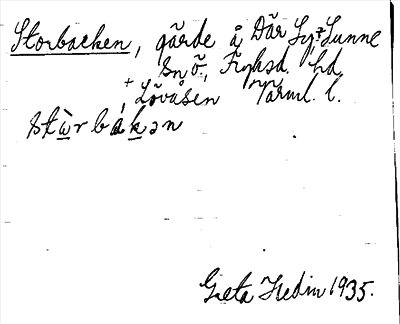 Storbacken, gärde å Där Ly, Sunne
sn ö., Fryksd. hd
+ Lövåsen Värml. l.
stὼrbákən
Greta Hedin 1935.